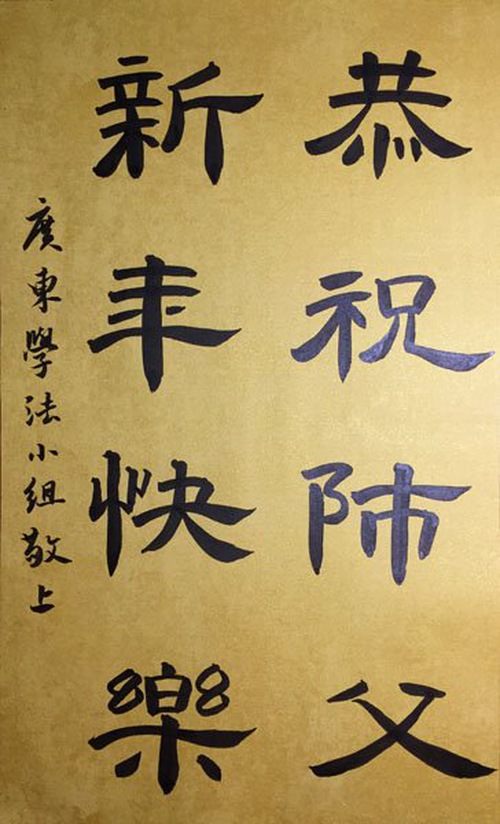 恭祝師父
新年快樂
廣東學法小組敬上